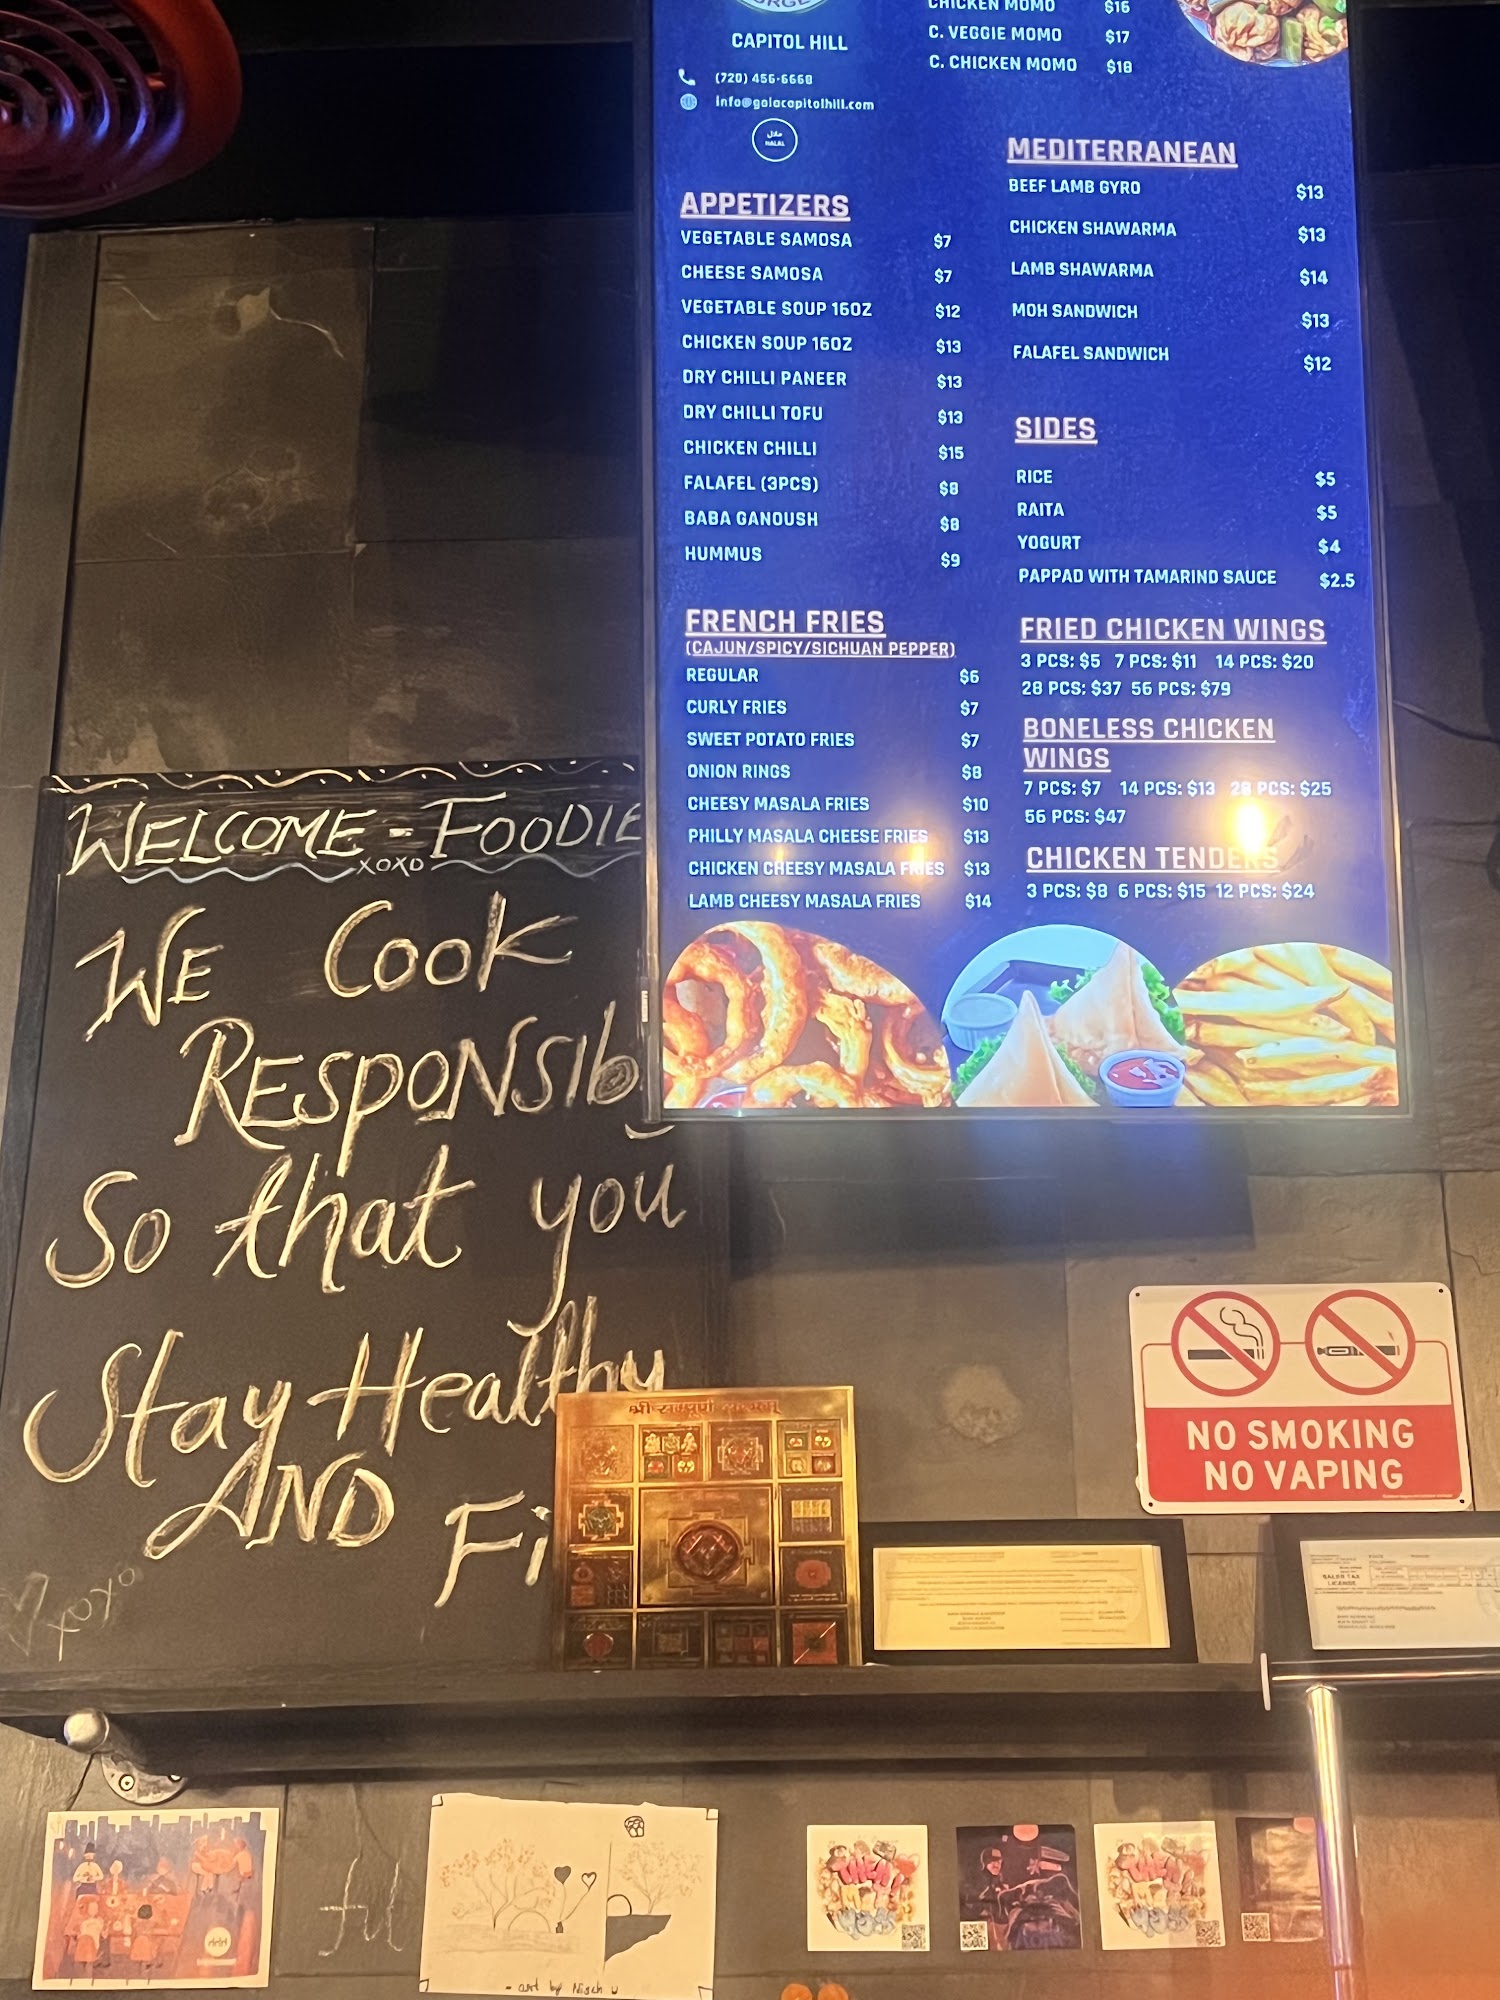 CAPITOL HILL
(720) 456-6660
info@galacapitolhill.com
HALAL
CHICKEN MOMO $16
C. VEGGIE MOMO $17
C. CHICKEN MOMO $18
APPETIZERS
VEGETABLE SAMOSA $7
CHEESE SAMOSA $7
VEGETABLE SOUP 16OZ $12
CHICKEN SOUP 16OZ $13
DRY CHILLI PANEER $13
DRY CHILLI TOFU $13
CHICKEN CHILLI $15
FALAFEL (3PCS) $8
BABA GANOUSH $8
HUMMUS $9
FRENCH FRIES
(CAJUN/SPICY/SICHUAN PEPPER)
REGULAR $6
CURLY FRIES $7
SWEET POTATO FRIES $7
ONION RINGS $8
CHEESY MASALA FRIES $10
PHILLY MASALA CHEESE FRIES $13
CHICKEN CHEESY MASALA FRIES $13
LAMB CHEESY MASALA FRIES $14
MEDITERRANEAN
BEEF LAMB GYRO $13
CHICKEN SHAWARMA $13
LAMB SHAWARMA $14
MOH SANDWICH $13
FALAFEL SANDWICH $12
SIDES
RICE $5
RAITA $5
YOGURT $4
PAPPAD WITH TAMARIND SAUCE $2.5
FRIED CHICKEN WINGS
3 PCS: $5 7 PCS: $11 14 PCS: $20
28 PCS: $37 56 PCS: $79
BONELESS CHICKEN
WINGS
7 PCS: $7 14 PCS: $13 28 PCS: $25
56 PCS: $47
CHICKEN TENDERS
3 PCS: $8 6 PCS: $15 12 PCS: $24
WELCOME - FOODIE
XOXO
WE COOK
RESPONSIB
So that you
Stay Healthy
AND Fi
xoxo
NO SMOKING
NO VAPING
SALES TAX
LICENSE
- art by Nisch u